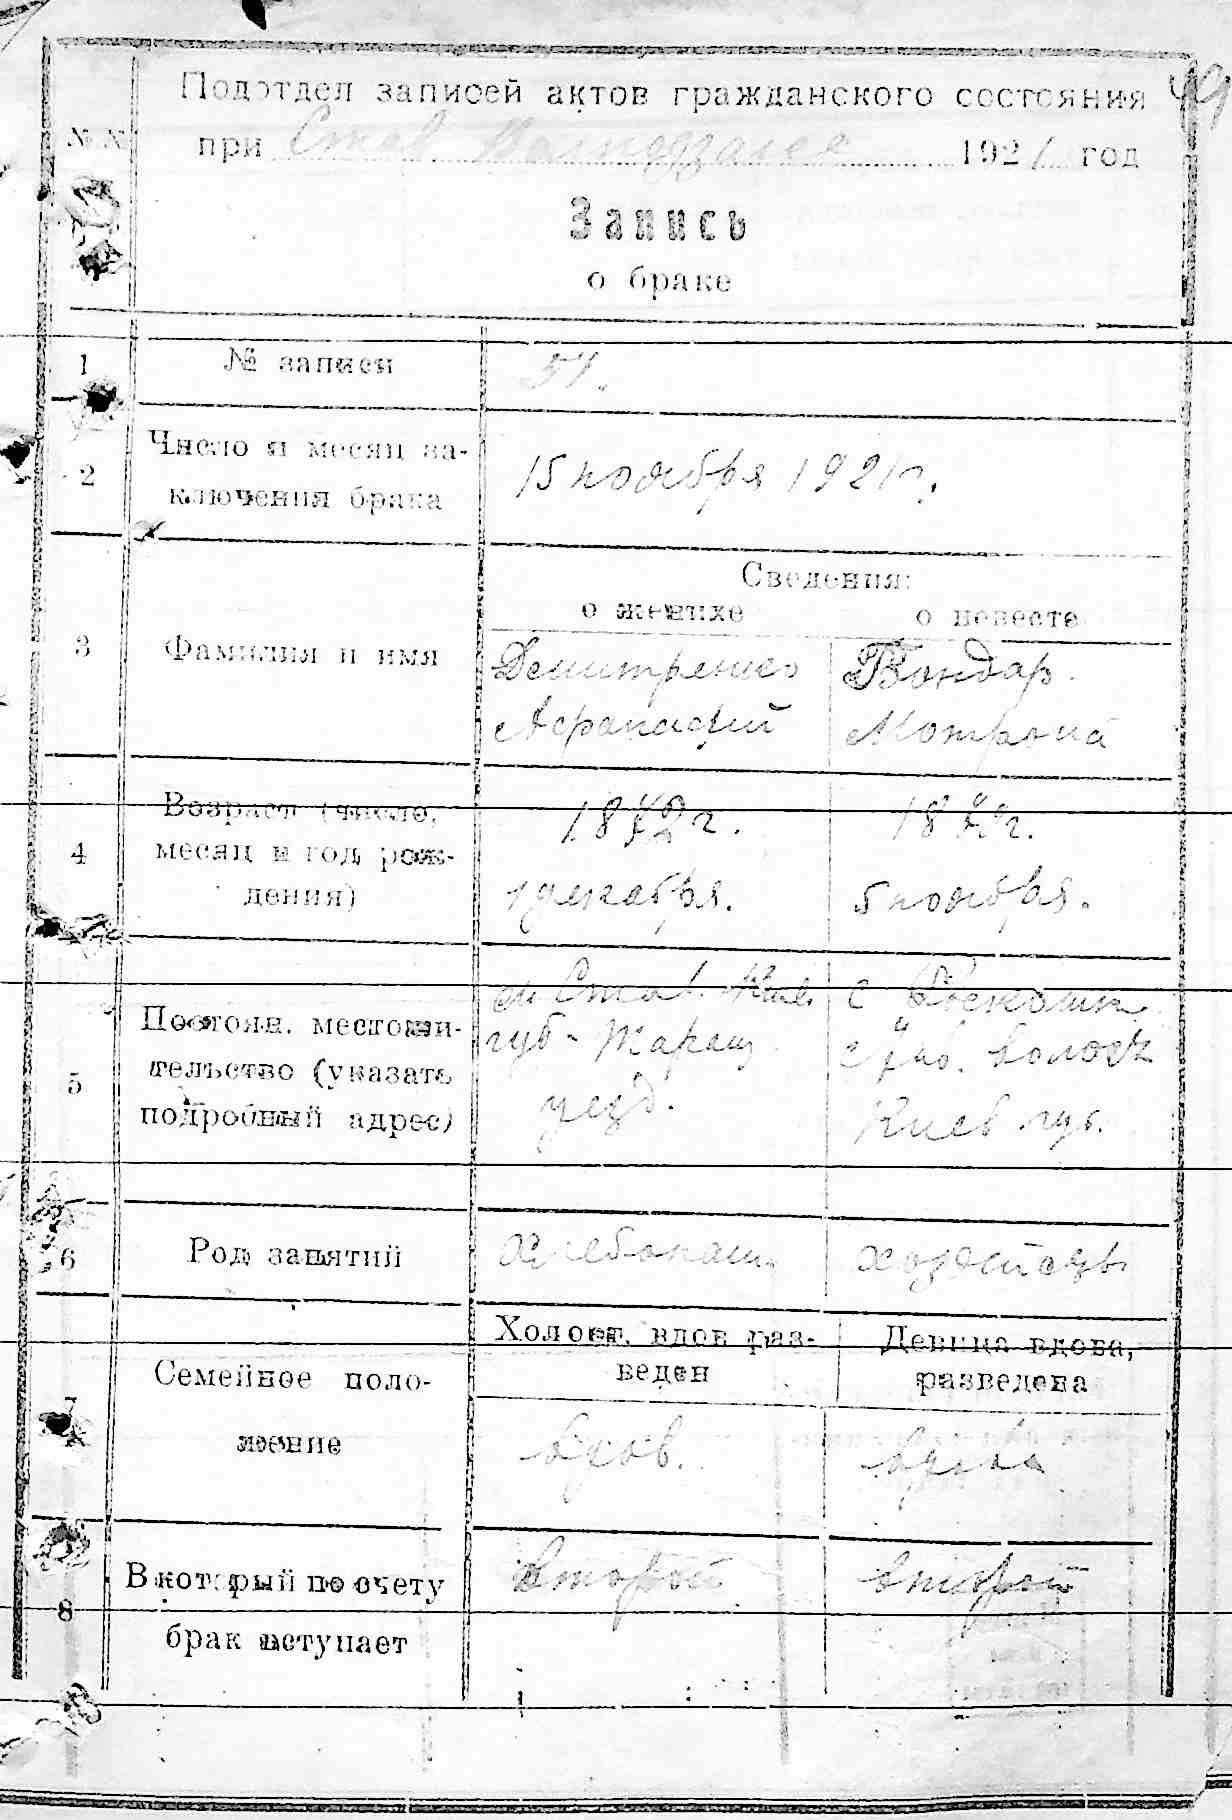 Подотдел записей актов гражданского состояния
№№ при Став. 1921 год
Запись
о браке
1 № записи 57.
2 Число и месяц за-
ключения брака 15 ноября 1921 г.
Сведения:
о женихе о невесте
3 Фамилия и имя Демитренко Бондар
Афанасий Мотрона
4 Возраст (число, 1872 г. 18 г.
месяц и год рож-
дения) 1 декабря. 5 ноября.
5 Постоян. местожи- м Став. Киев. с
тельство (указать губ. Таращ. волость
подробный адрес) уезд. Киев губ.
6 Род занятий Хлебопаш.
Холост, вдов раз- Девица вдова,
веден разведена
7 Семейное поло-
жение вдов. вдова
8 В который по счету второй второй
брак вступает